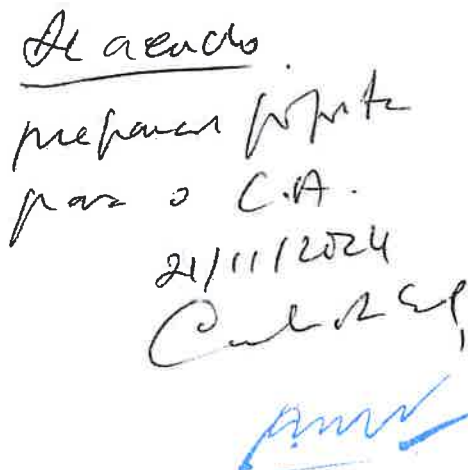 De acordo
preparar proposta
para o C.A.
21/11/2024